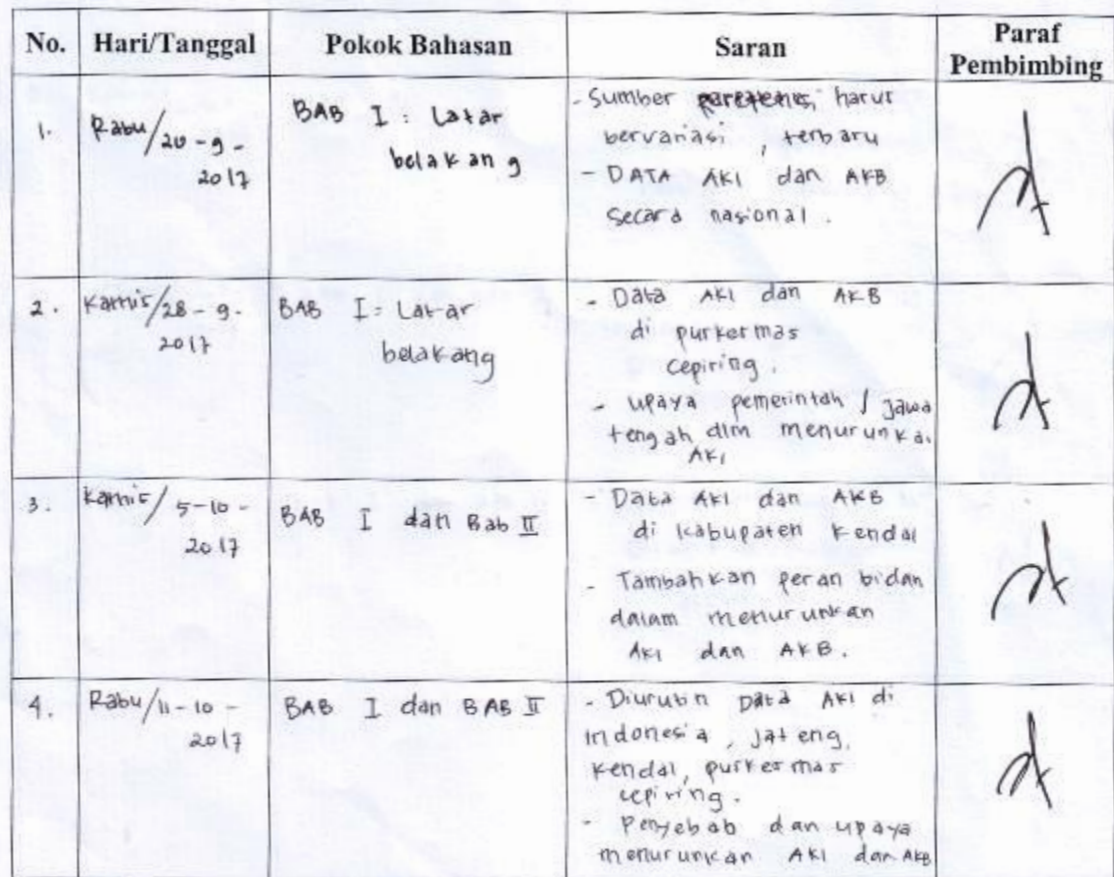 No. Hari/Tanggal Pokok Bahasan Saran Paraf Pembimbing
1. Rabu/20-9-2017
BAB I : Latar
belakang
- Sumber harus
bervariasi, terbaru
- DATA AKI dan AKB
secara nasional.
2. Kamis/28-9-2017
BAB I: Latar
belakang
- Data AKI dan AKB
di puskesmas
cepiring.
- upaya pemerintah / jawa
tengah dlm menurunkan
AKI
3. Kamis/5-10-2017
BAB I dan Bab II
- Data AKI dan AKB
di kabupaten Kendal
- Tambahkan peran bidan
dalam menurunkan
AKI dan AKB.
4. Rabu/11-10-2017
BAB I dan BAB II
- Diurutin Data AKI di
indonesia, jateng,
kendal, puskesmas
cepiring.
- Penyebab dan upaya
menurunkan AKI dan AKB